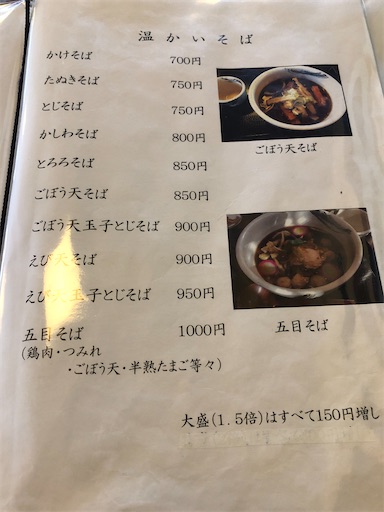 温かいそば
かけそば 700円
たぬきそば 750円
とじそば 750円
かしわそば 800円
とろろそば 850円
ごぼう天そば 850円
ごぼう天玉子とじそば 900円
えび天そば 900円
えび天玉子とじそば 950円
五目そば 1000円
(鶏肉・つみれ
・ごぼう天・半熟たまご等々)
ごぼう天そば
五目そば
大盛(1.5倍)はすべて150円増し